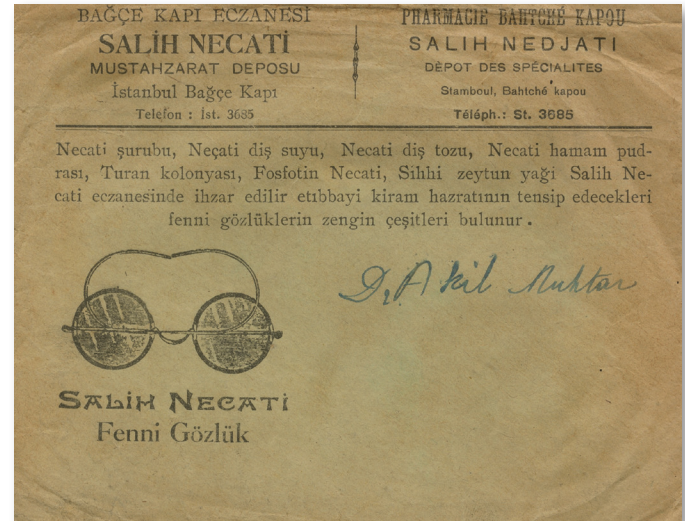 BAĞÇE KAPI ECZANESİ
SALİH NECATİ
MUSTAHZARAT DEPOSU
İstanbul Bağçe Kapı
Telefon : İst. 3685
PHARMACIE BAHTCHÉ KAPOU
SALIH NEDJATI
DÉPOT DES SPÉCIALITES
Stamboul, Bahtché kapou
Téléph.: St. 3685
Necati şurubu, Neçati diş suyu, Necati diş tozu, Necati hamam pud-
rası, Turan kolonyası, Fosfotin Necati, Sihhi zeytun yaği Salih Ne-
cati eczanesinde ihzar edilir etıbbayi kiram hazratının tensip edecekleri
fenni gözlüklerin zengin çeşitleri bulunur.
Dr Akil Muhtar
SALİH NECATİ
Fenni Gözlük